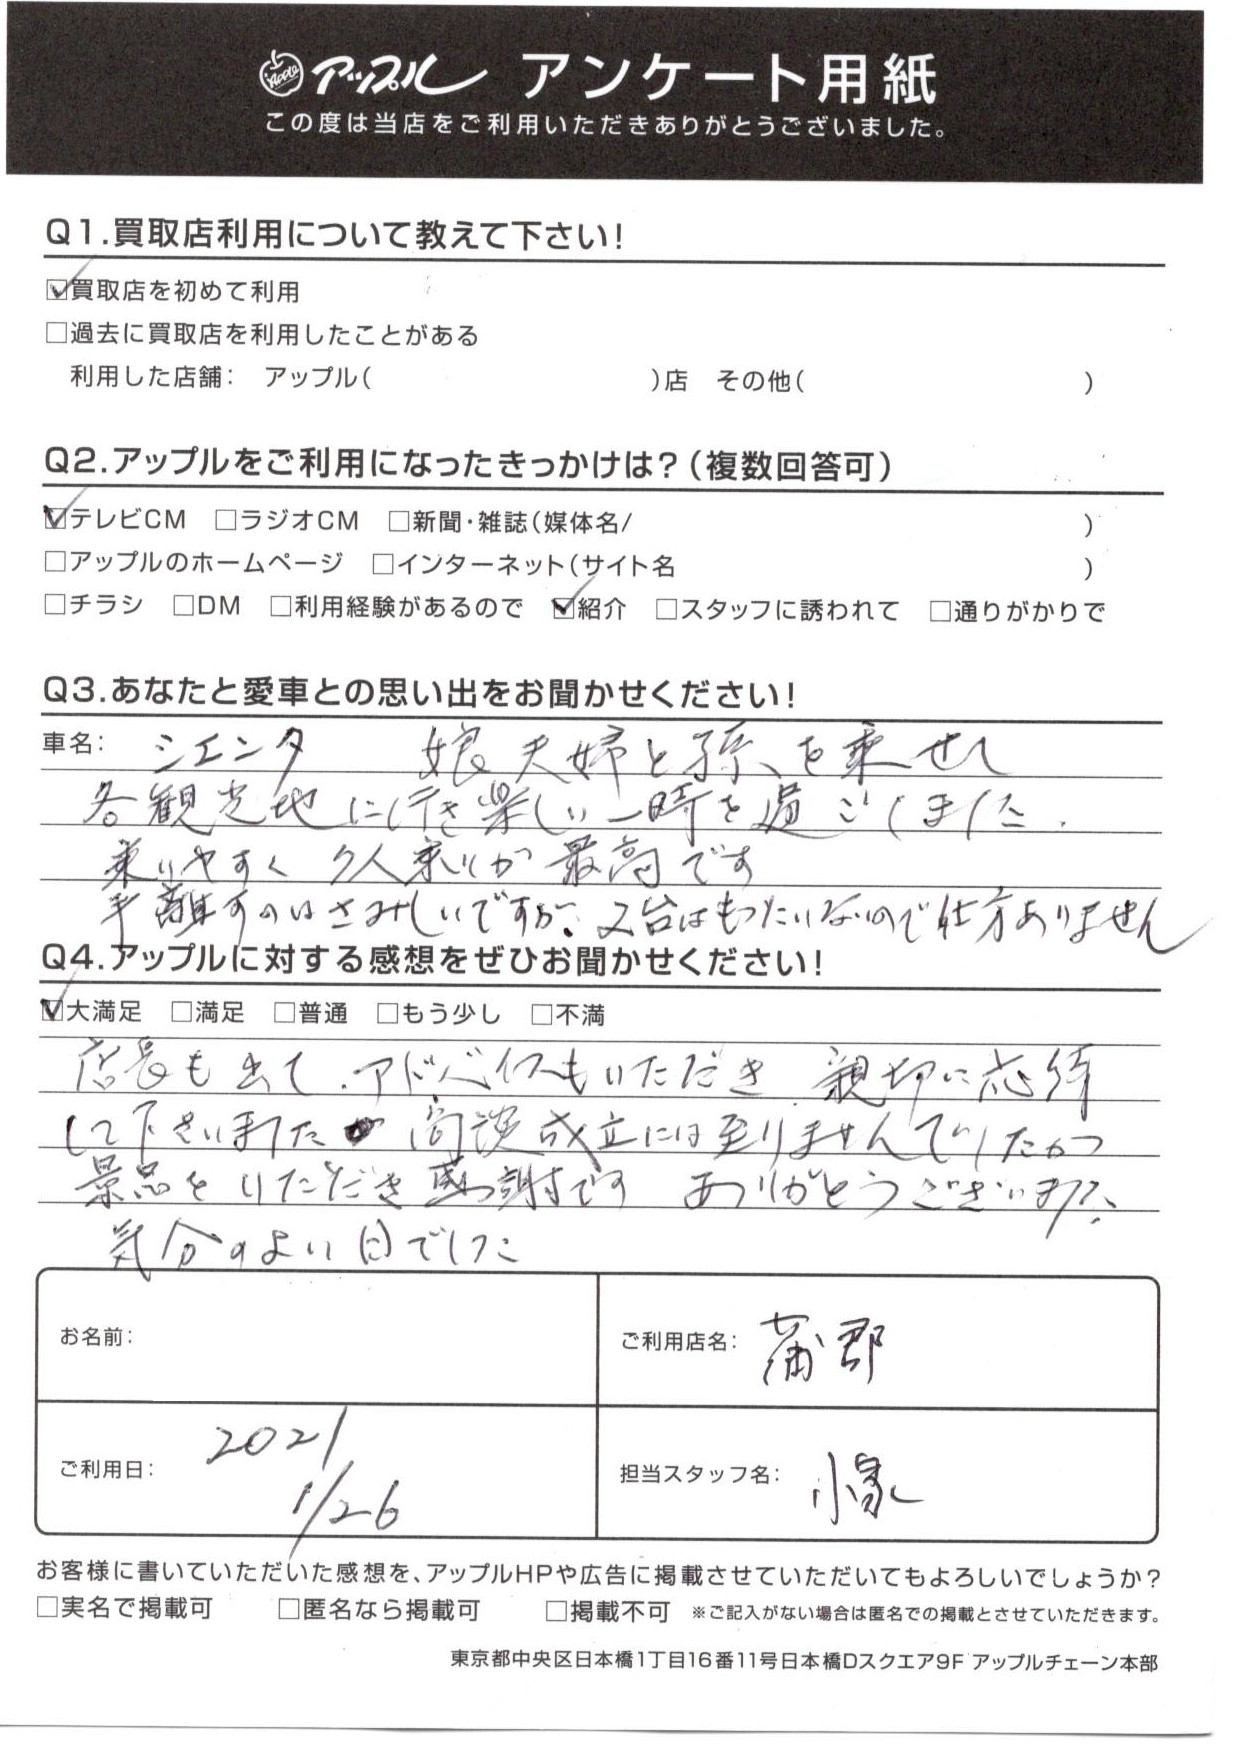 Apple アップル アンケート用紙
この度は当店をご利用いただきありがとうございました。
Q1.買取店利用について教えて下さい!
☑買取店を初めて利用
□過去に買取店を利用したことがある
利用した店舗: アップル( )店 その他( )
Q2.アップルをご利用になったきっかけは?(複数回答可)
☑テレビCM □ラジオCM □新聞・雑誌(媒体名/ )
□アップルのホームページ □インターネット(サイト名 )
□チラシ □DM □利用経験があるので ☑紹介 □スタッフに誘われて □通りがかりで
Q3.あなたと愛車との思い出をお聞かせください!
車名: シエンタ 娘夫婦と孫を乗せ
各観光地に行き楽しい一時を過ごしました.
乗りやすく 7人乗りが最高です
手離すのはさみしいですが、2台はもったいないので仕方ありません
Q4.アップルに対する感想をぜひお聞かせください!
☑大満足 □満足 □普通 □もう少し □不満
店長も出て、アドバイスもいただき 親切に応待
して下さいました 商談成立には至りませんでしたが
景品をいただき感謝です ありがとうございます
気分のよい日でした
お名前:
ご利用店名: 蒲郡
ご利用日: 2021
1/26
担当スタッフ名: 小
お客様に書いていただいた感想を、アップルHPや広告に掲載させていただいてもよろしいでしょうか?
□実名で掲載可 □匿名なら掲載可 □掲載不可 ※ご記入がない場合は匿名での掲載とさせていただきます。
東京都中央区日本橋1丁目16番11号日本橋Dスクエア9F アップルチェーン本部